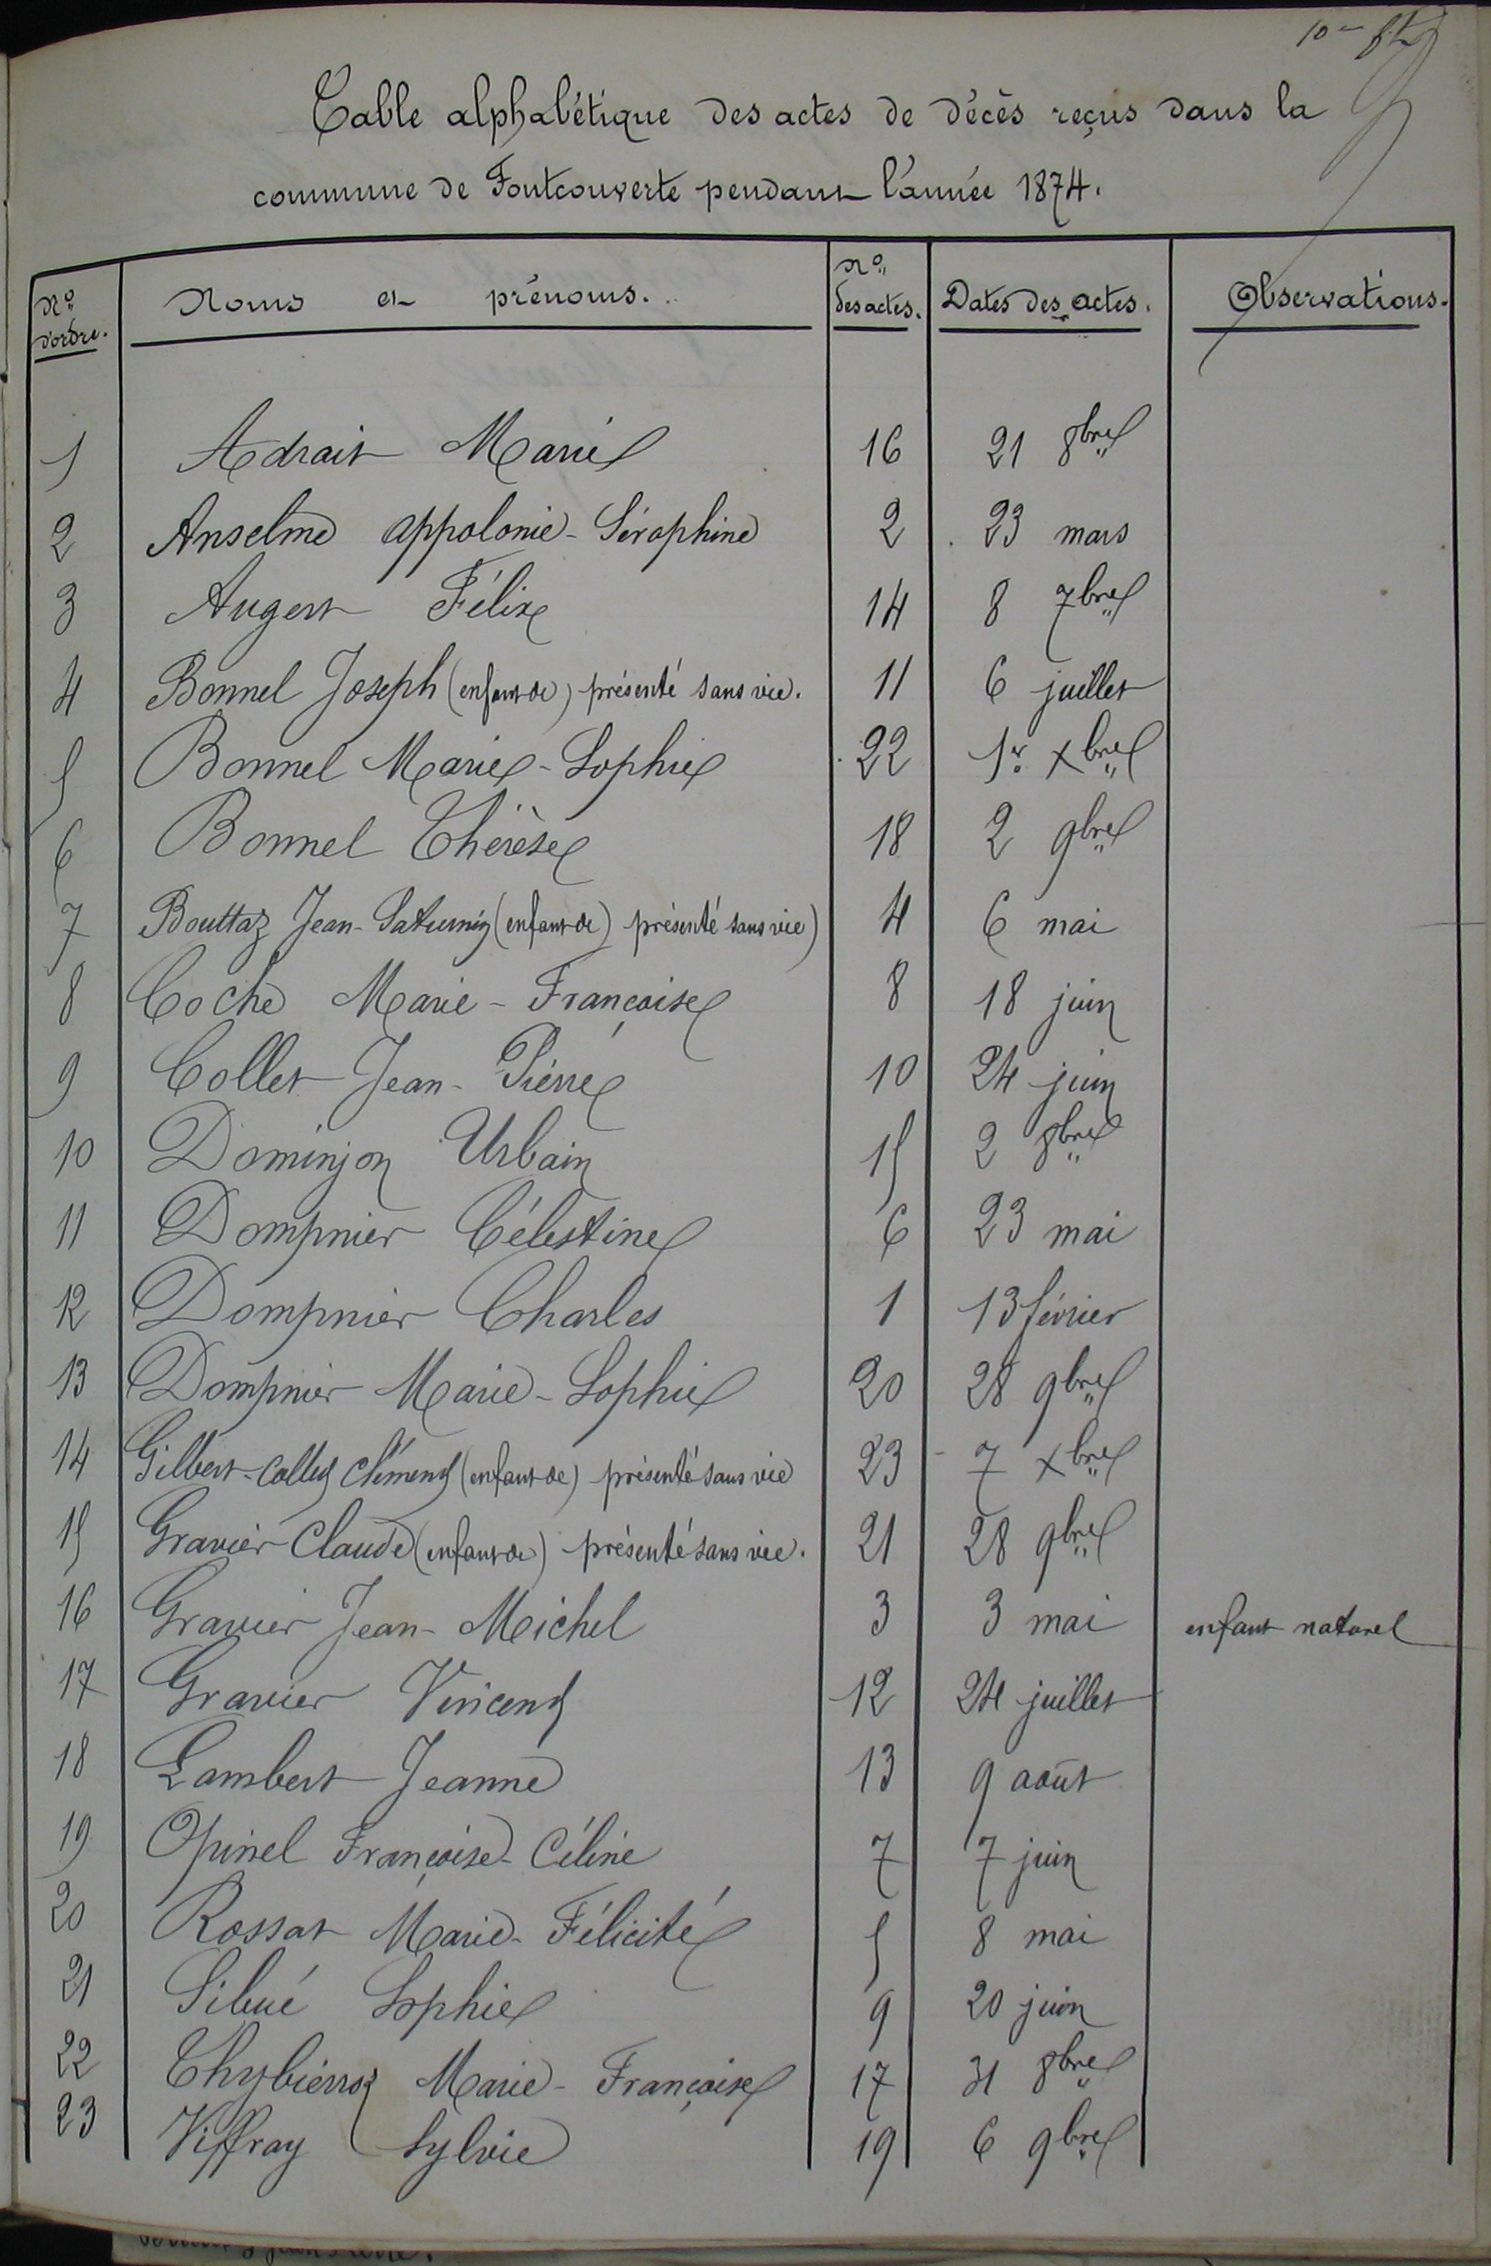 Table alphabétique des actes de décès reçus dans la
commune de Fontcouverte pendant l'année 1874.
Nº d'ordre. Noms et prénoms. Nº des actes. Dates des actes. Observations.
1 Adrait Marie 16 21 8bre
2 Anselme Appolonie-Séraphine 2 23 mars
3 Augert Félix 14 8 7bre
4 Bonnel Joseph (enfant de) présenté sans vie. 11 6 juillet
5 Bonnel Marie-Sophie 22 1er Xbre
6 Bonnel Thérèse 18 2 9bre
7 Bouttaz Jean-Saturnin (enfant de) présenté sans vie) 4 6 mai
8 Coche Marie-Françoise 8 18 juin
9 Collet Jean-Pierre 10 24 juin
10 Dominjon Urbain 15 2 8bre
11 Dompnier Célestine 6 23 mai
12 Dompnier Charles 1 13 février
13 Dompnier Marie-Sophie 20 28 9bre
14 Gilbert-Collet Clément (enfant de) présenté sans vie 23 7 Xbre
15 Gravier Claude (enfant de) présenté sans vie. 21 28 9bre
16 Gravier Jean-Michel 3 3 mai enfant naturel
17 Gravier Vincent 12 24 juillet
18 Lambert Jeanne 13 9 août
19 Opinel Françoise-Céline 7 7 juin
20 Rossat Marie-Félicité 5 8 mai
21 Sibué Sophie 9 20 juin
22 Thybierroz Marie-Françoise 17 31 8bre
23 Viffray Sylvie 19 6 9bre